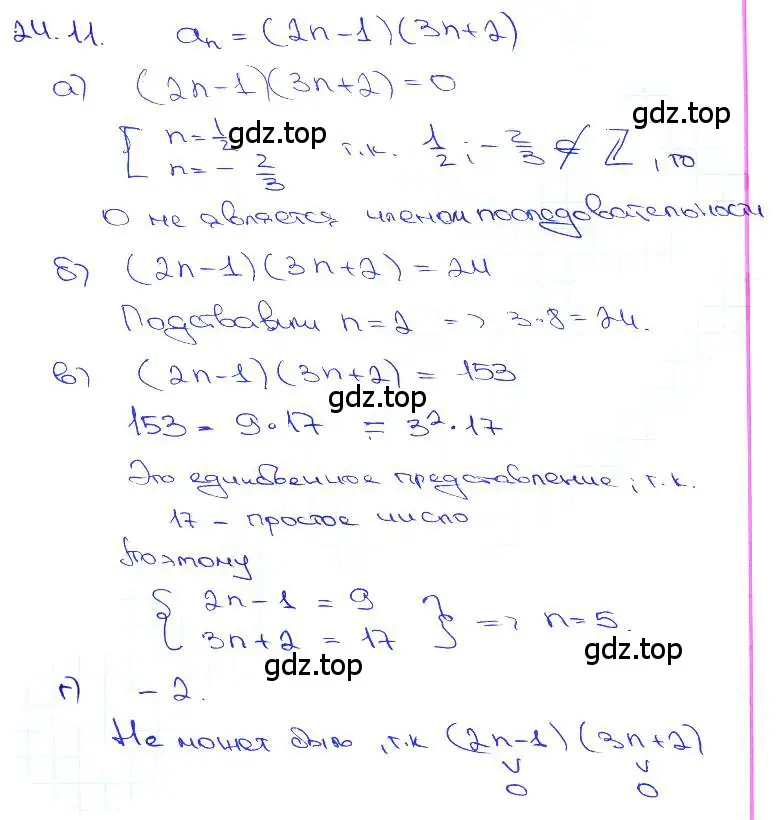 24.11. aₙ = (2n-1)(3n+2)
а) (2n-1)(3n+2)=0
[ n=1/2
n=-2/3 т.к. 1/2; -2/3 ∉ ℤ, то
gdz.top
gdz.top
0 не является членом последовательности
б) (2n-1)(3n+2)=24
Подставим n=2 => 3·8=24.
в) (2n-1)(3n+2) = 153
gdz.top
153 = 9·17 = 3²·17
Это единственное представление, т.к.
17 - простое число
Поэтому
{ 2n-1 = 9
3n+2 = 17 } => n=5.
gdz.top
gdz.top
г) -2.
Не может быть, т.к (2n-1) (3n+2)
v v
0 0